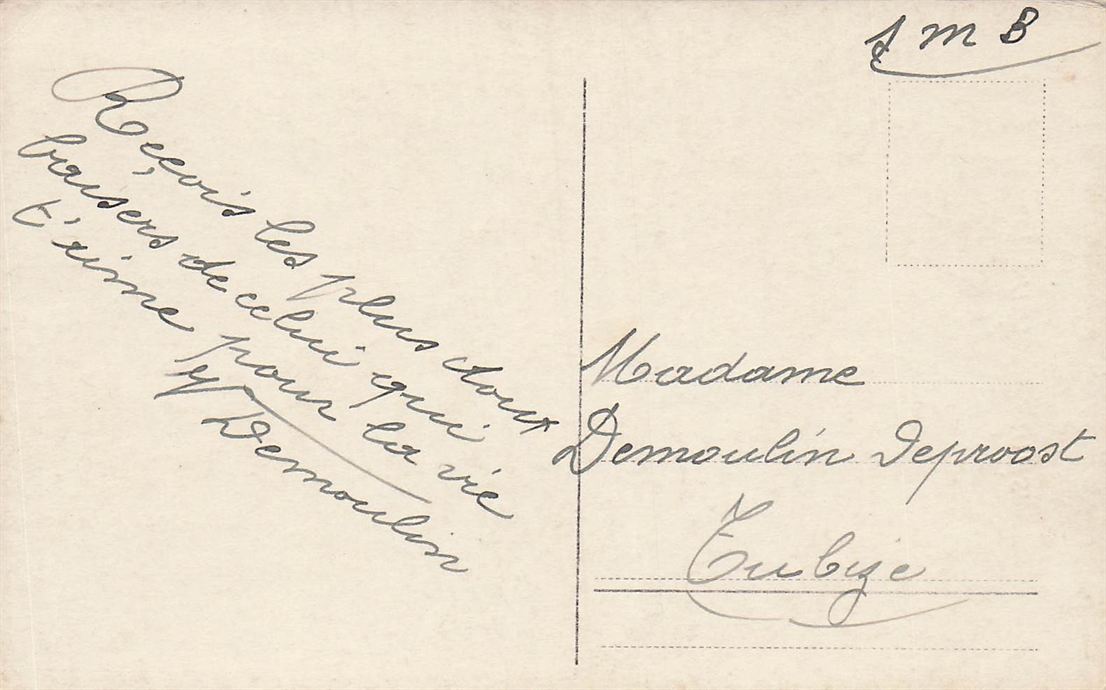 S M B
Reçois les plus doux
baisers de celui qui
t'aime pour la vie
Demoulin
Madame
Demoulin Deproost
Tubize